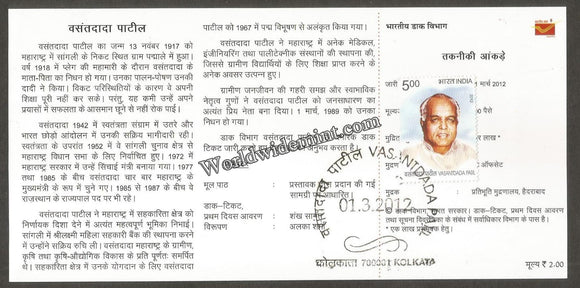 वसंतदादा पाटील
वसंतदादा पाटील का जन्म 13 नवंबर 1917 को
महाराष्ट्र में सांगली के निकट स्थित ग्राम पद्माले में हुआ।
वर्ष 1918 में प्लेग की महामारी के दौरान वसंतदादा के
माता-पिता का निधन हो गया। उनका पालन-पोषण उनकी
दादी ने किया। विकट परिस्थितियों के कारण वे अपनी
शिक्षा पूरी नहीं कर सके। परंतु, यह कमी उन्हें अपने
प्रयासों में सफलता के आसमान छूने से नहीं रोक पाई।
वसंतदादा 1942 में स्वतंत्रता संग्राम में उतरे और
भारत छोड़ो आंदोलन में उनकी सक्रिय भागीदारी रही।
स्वतंत्रता के उपरांत 1952 में वे सांगली चुनाव क्षेत्र से
महाराष्ट्र विधान सभा के लिए निर्वाचित हुए। 1972 में
महाराष्ट्र सरकार में उन्हें सिंचाई मंत्री बनाया गया। 1977
तथा 1985 के बीच वसंतदादा चार बार महाराष्ट्र के
मुख्यमंत्री के रूप में चुने गए। 1985 से 1987 के बीच वे
राजस्थान के राज्यपाल पद पर भी रहे।
वसंतदादा पाटील ने महाराष्ट्र में सहकारिता क्षेत्र को
निर्णायक दिशा देने में अत्यंत महत्वपूर्ण भूमिका निभाई।
सांगली में श्रीलक्ष्मी महिला सहकारी बैंक की स्थापना करने
में उन्होंने सक्रिय रुचि ली। वसंतदादा महाराष्ट्र के ग्रामीण,
कृषि तथा कृषि-औद्योगिक विकास के प्रति पूर्णतः समर्पित
थे। सहकारिता क्षेत्र में उनके योगदान के लिए वसंतदादा
पाटील को 1967 में पद्म विभूषण से अलंकृत किया गया।
वसंतदादा पाटील ने महाराष्ट्र में अनेक मेडिकल,
इंजीनियरिंग तथा पालीटेक्नीक संस्थानों की स्थापना की,
जिससे ग्रामीण विद्यार्थियों के लिए शिक्षा प्राप्त करने के
अनेक अवसर उत्पन्न हुए।
ग्रामीण जनजीवन की गहरी समझ और स्वाभाविक
नेतृत्व गुणों ने वसंतदादा पाटील को जनसाधारण का
अत्यंत प्रिय नेता बना दिया। 1 मार्च, 1989 को उनका
निधन हो गया।
डाक विभाग वसंतदादा पाटील पर स्मारक डाक
टिकट जारी करते हुए
अनुभव करता है।
मूल पाठ : प्रस्तावक द्वारा प्रदान की गई
सामग्री पर आधारित।
डाक-टिकट,
प्रथम दिवस आवरण : शंख
विरूपण : अलका
भारतीय डाक विभाग
तकनीकी आंकड़े
जारी
मार्च 2012
मूल्य
पैसे
लाख
ऑफसेट
मुद्रक : प्रतिभूति मुद्रणालय, हैदराबाद
डाक विभाग, भारत सरकार। डाक-टिकट, प्रथम दिवस आवरण
तथा सूचना विवरणिका के संबंध में सर्वाधिकार विभाग के पास है।
मूल्य ₹ 2.00
5.00
भारत INDIA
वसंतदादा पाटील VASANTDADA PATIL
वसंतदादा पाटील VASANTDADA PATIL
01.3.2012
कोलकाता 700001 KOLKATA
Worldwidemint.com